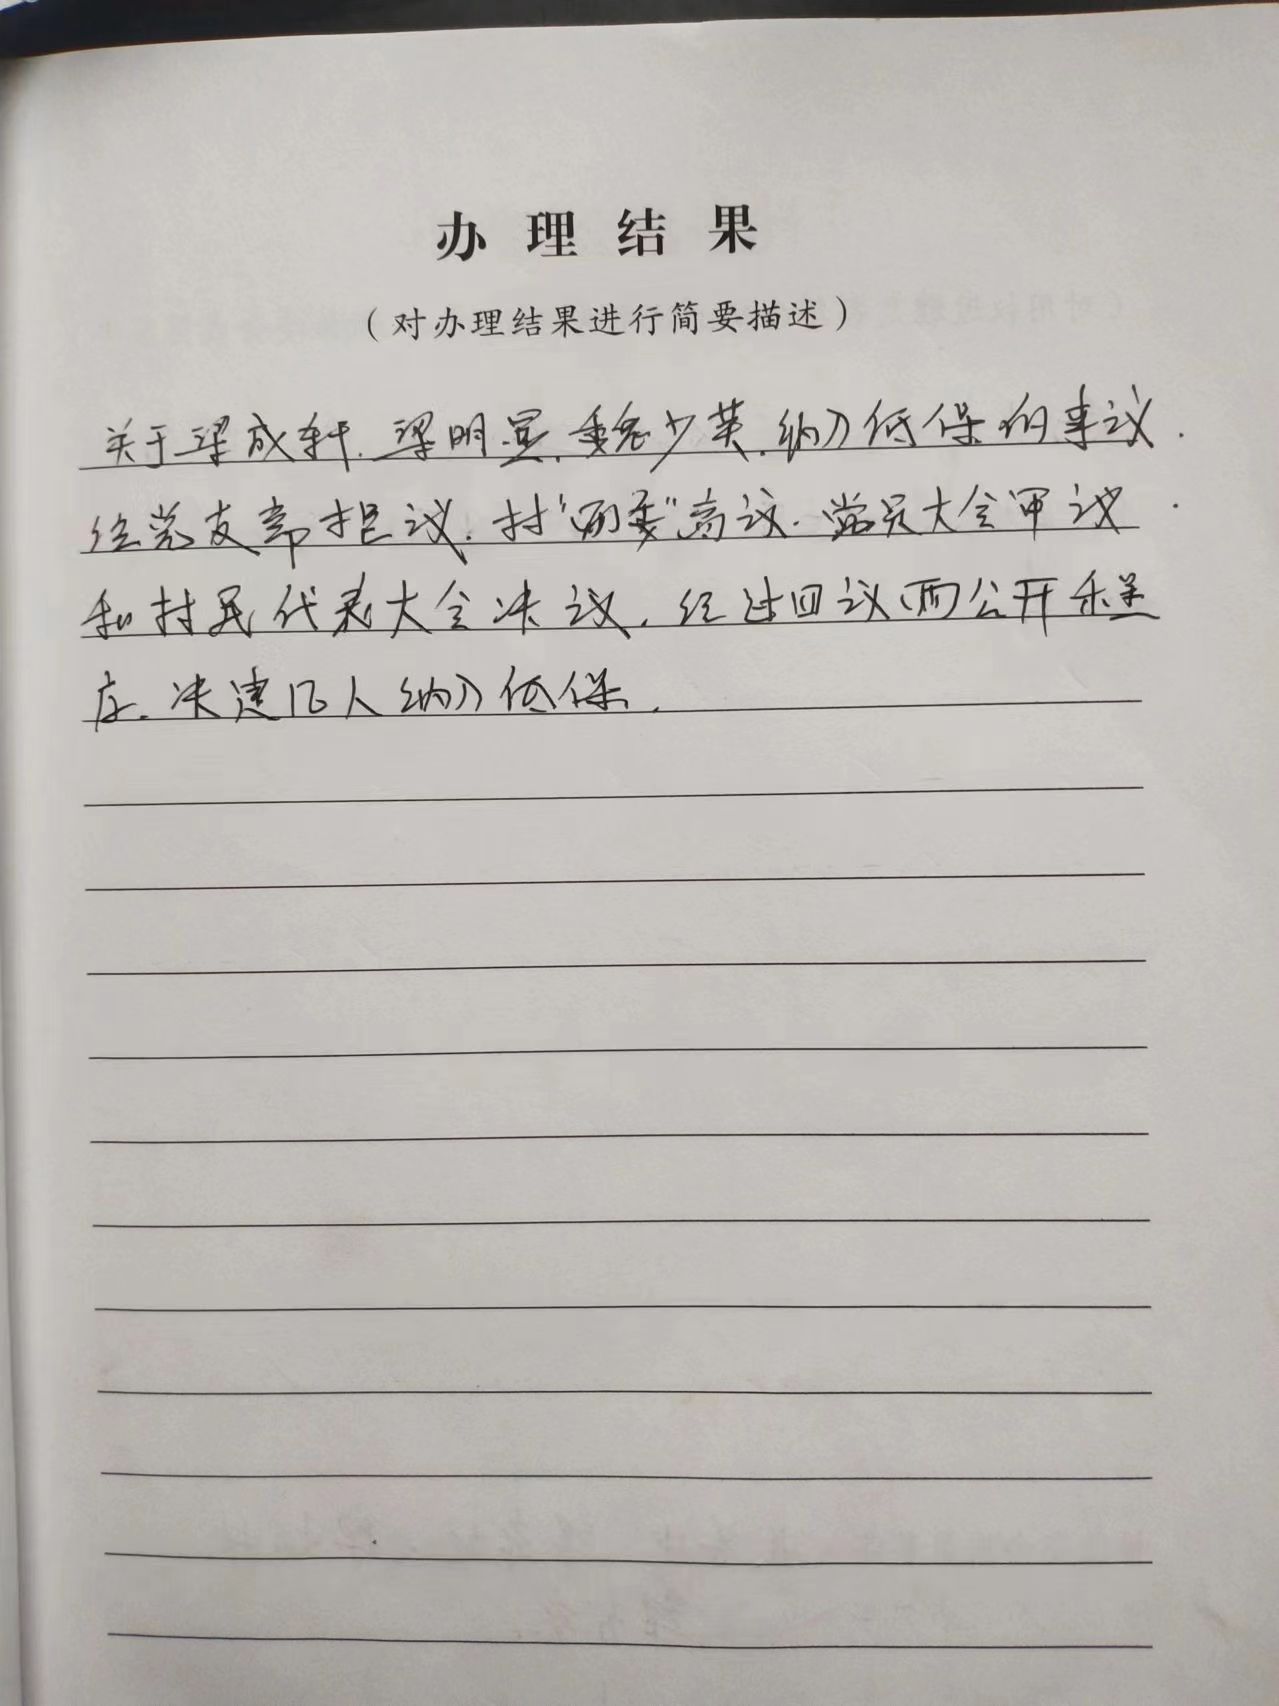 办理结果
（对办理结果进行简要描述）
关于梁成轩、梁明显、魏少英、纳入低保的事议.
经党支部提议.村“两委”商议.党员大会审议.
和村民代表大会决议.经过四议两公开程
序.决定几人纳入低保.